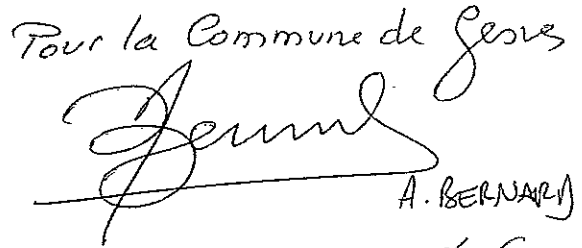 Pour la Commune de Gesves
A. BERNARD